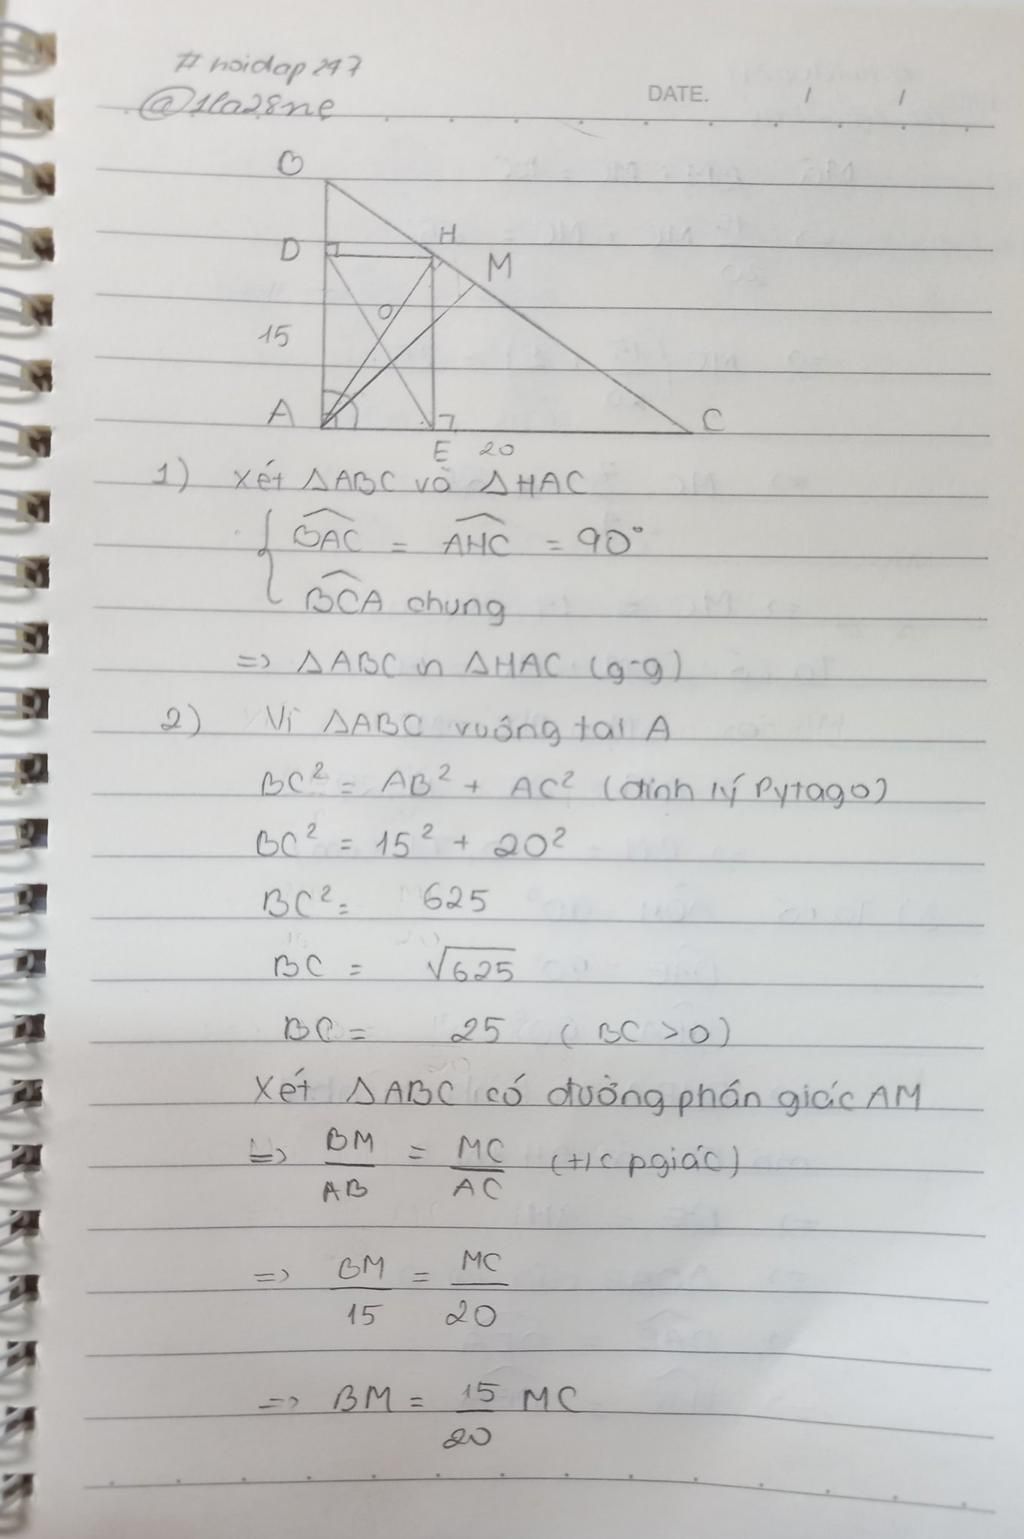 # hoidap247
@1la28ne
DATE. / /
B
D
H
M
O
15
A
C
E 20
1) Xét ΔABC và ΔHAC
{ BAC^ = AHC^ = 90°
BCA^ chung
=> ΔABC ∽ ΔHAC (g-g)
2) Vì ΔABC vuông tại A
BC² = AB² + AC² (định lý Pytago)
BC² = 15² + 20²
BC² = 625
BC = √625
BC = 25 (BC > 0)
Xét ΔABC có đường phân giác AM
=> BM/AB = MC/AC (t/c pgiác)
=> BM/15 = MC/20
=> BM = 15/20 MC